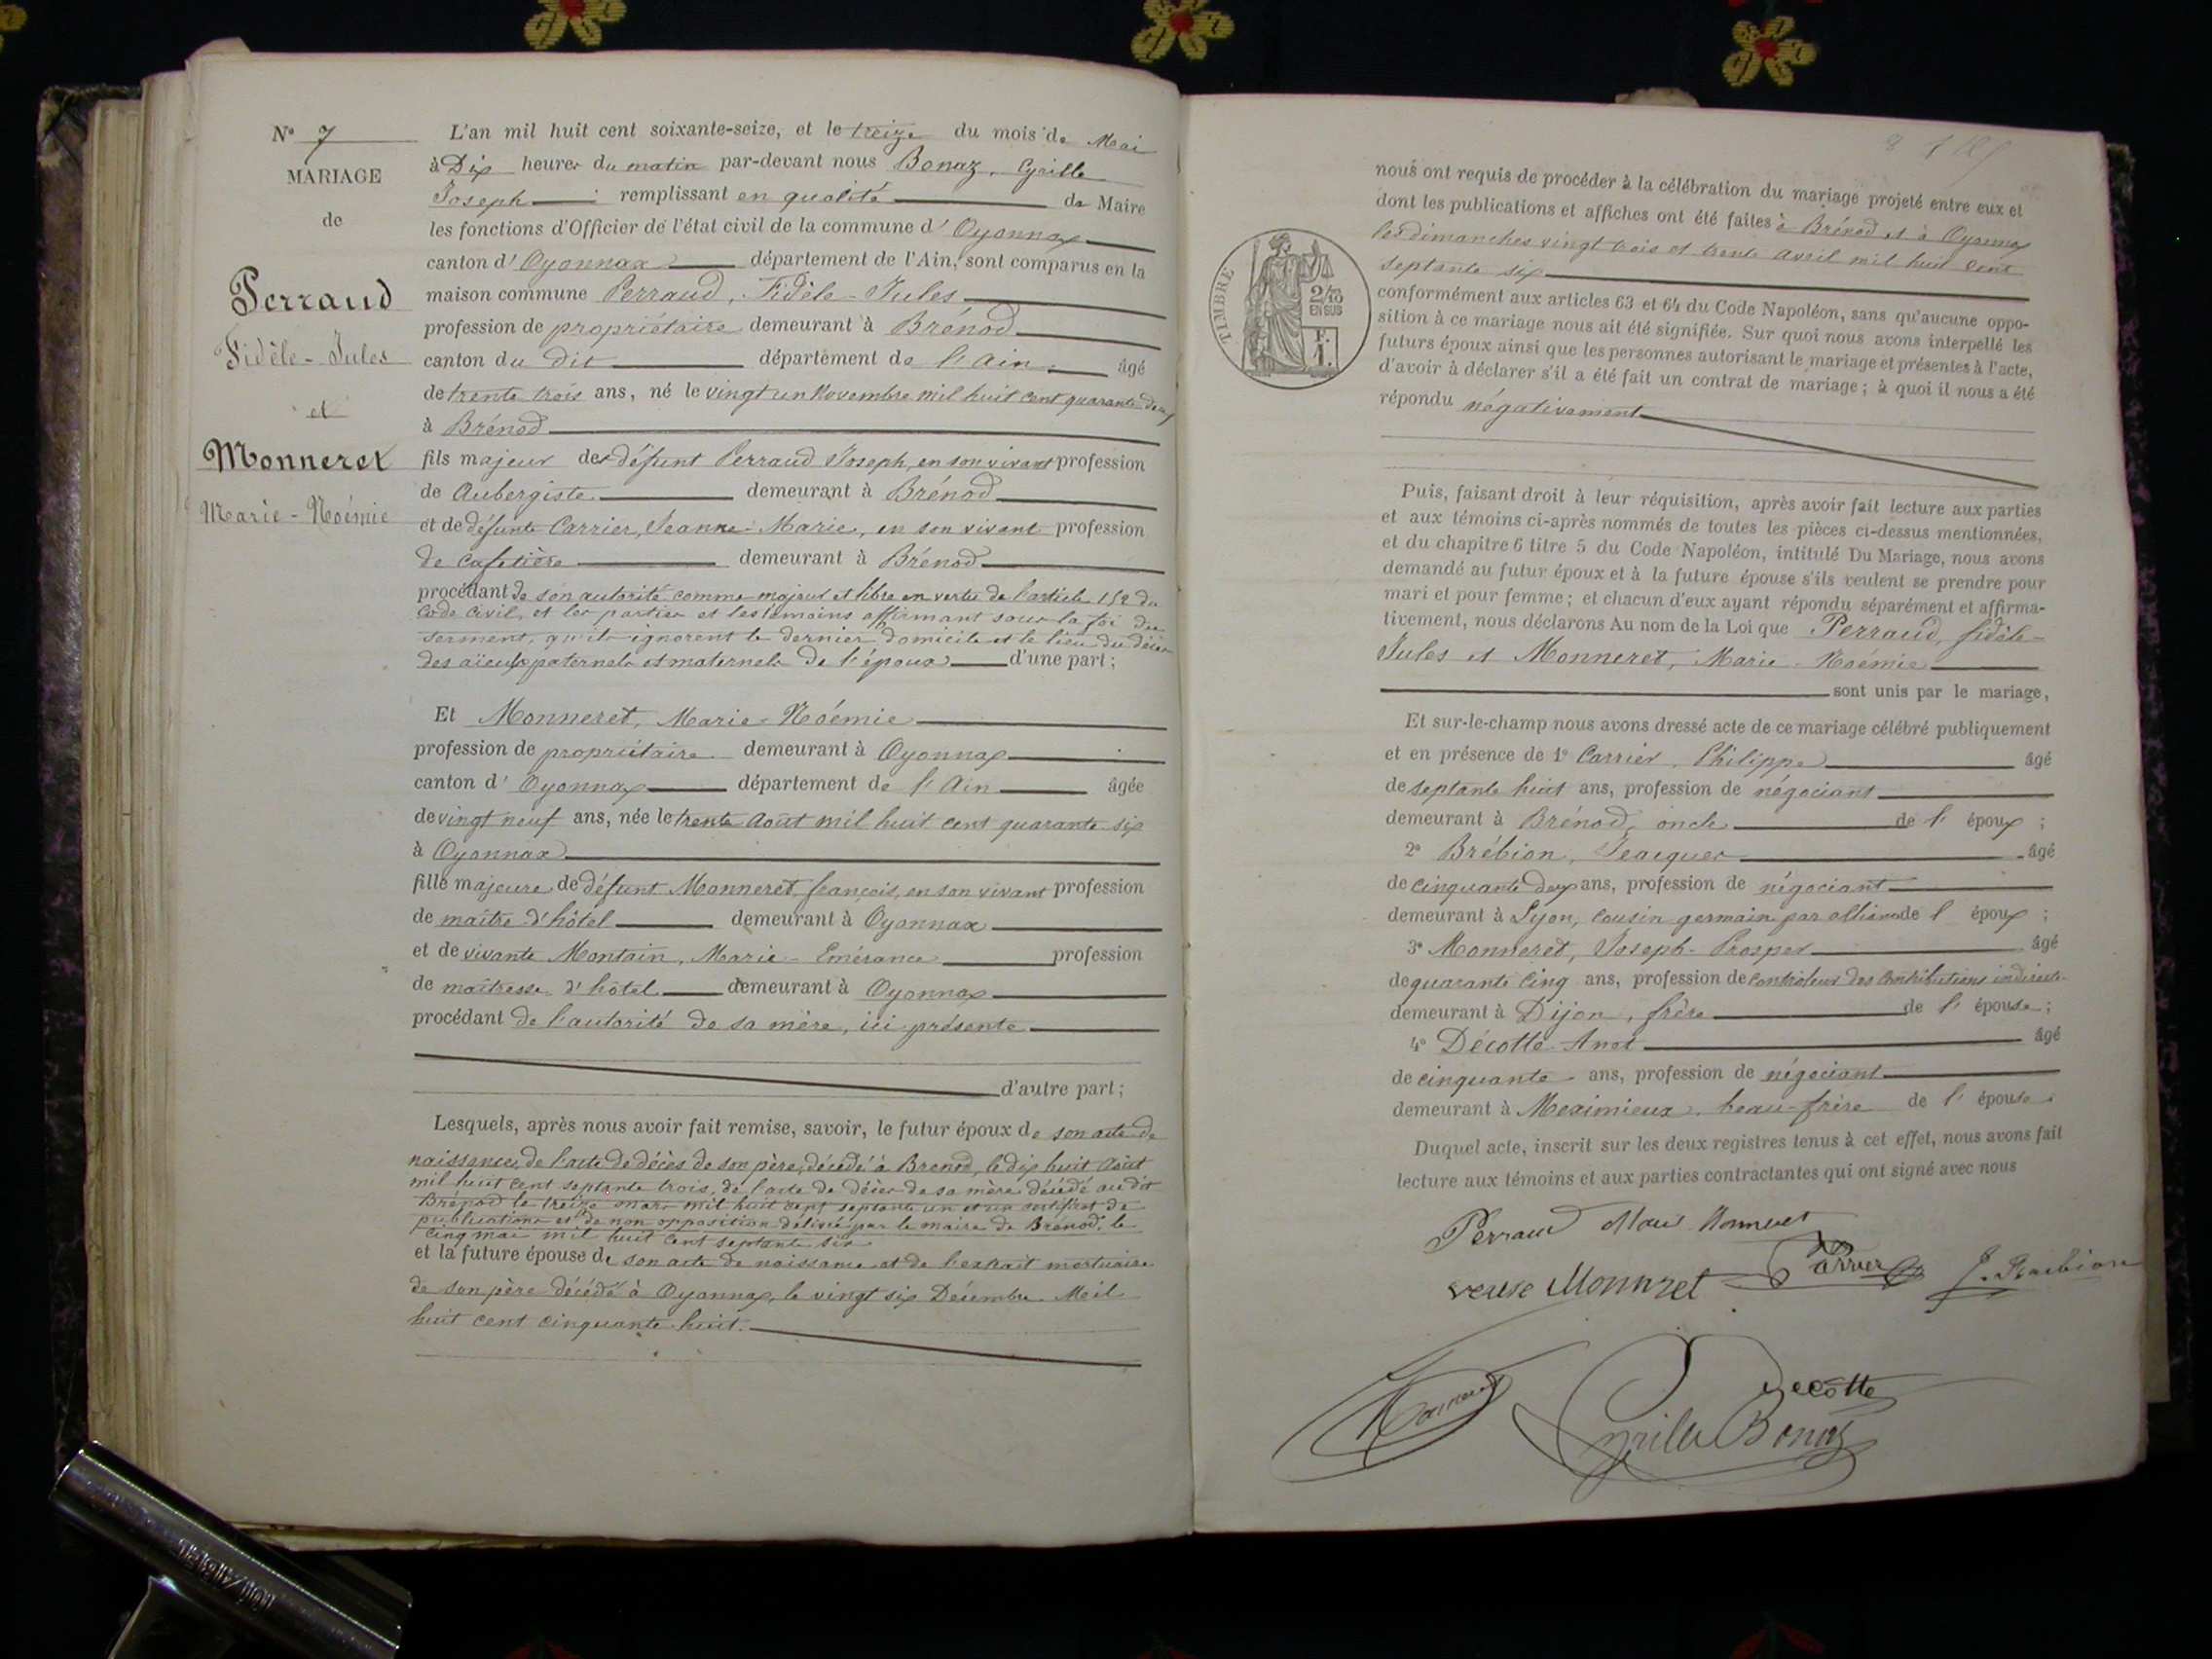 N° 7
MARIAGE
de
Perraud
Fidèle - Jules
et
Monneret
Marie - Noémie
L'an mil huit cent soixante-seize, et le treize du mois de Mai
à Dix heures du matin par-devant nous Bonaz, Cyrille
Joseph remplissant en qualité de Maire
les fonctions d'Officier de l'état civil de la commune d' Oyonnax
canton d' Oyonnax département de l'Ain, sont comparus en la
maison commune Perraud, Fidèle - Jules
profession de propriétaire demeurant à Brénod
canton du dit département de l'Ain âgé
de trente trois ans, né le vingt un Novembre mil huit cent quarante deux
à Brénod
fils majeur de défunt Perraud Joseph, en son vivant profession
de Aubergiste demeurant à Brénod
et de défunte Carrier, Jeanne - Marie, en son vivant profession
de Cafetière demeurant à Brénod
procédant de son autorité comme majeur et libre en vertu de l'article 152 du
Code Civil, et les parties et les témoins affirmant sous la foi du
serment, qu'ils ignorent le dernier domicile et le lieu du décès
des aïeuls paternels et maternels de l'époux d'une part;
Et Monneret, Marie - Noémie
profession de propriétaire demeurant à Oyonnax
canton d' Oyonnax département de l'Ain âgée
de vingt neuf ans, née le trente Août mil huit cent quarante six
à Oyonnax
fille majeure de défunt Monneret, françois, en son vivant profession
de maître d'hôtel demeurant à Oyonnax
et de vivante Montain, Marie - Emérance profession
de maîtresse d'hôtel demeurant à Oyonnax
procédant de l'autorité de sa mère, ici présente
d'autre part;
Lesquels, après nous avoir fait remise, savoir, le futur époux de son acte de
naissance, de l'acte de décès de son père, décédé à Brénod, le dix huit Août
mil huit cent septante trois, de l'acte de décès de sa mère décédé au dit
Brénod le treize mars mil huit cent septante un et un certificat de
publications et de non opposition délivré par le maire de Brénod, le
cinq mai mil huit cent septante six
et la future épouse de son acte de naissance et de l'extrait mortuaire
de son père décédé à Oyonnax, le vingt six Décembre Mil
huit cent cinquante huit.
nous ont requis de procéder à la célébration du mariage projeté entre eux et
dont les publications et affiches ont été faites à Brénod et à Oyonnax
les dimanches vingt trois et trente avril mil huit cent
septante six
TIMBRE
2/10
EN SUS
F.
1.
conformément aux articles 63 et 64 du Code Napoléon, sans qu'aucune oppo-
sition à ce mariage nous ait été signifiée. Sur quoi nous avons interpellé les
futurs époux ainsi que les personnes autorisant le mariage et présentes à l'acte,
d'avoir à déclarer s'il a été fait un contrat de mariage; à quoi il nous a été
répondu négativement
Puis, faisant droit à leur réquisition, après avoir fait lecture aux parties
et aux témoins ci-après nommés de toutes les pièces ci-dessus mentionnées,
et du chapitre 6 titre 5 du Code Napoléon, intitulé Du Mariage, nous avons
demandé au futur époux et à la future épouse s'ils veulent se prendre pour
mari et pour femme; et chacun d'eux ayant répondu séparément et affirma-
tivement, nous déclarons Au nom de la Loi que Perraud, fidèle -
Jules et Monneret, Marie - Noémie
sont unis par le mariage,
Et sur-le-champ nous avons dressé acte de ce mariage célébré publiquement
et en présence de 1° Carrier, Philippe âgé
de septante huit ans, profession de négociant
demeurant à Brénod, oncle de l' époux;
2° Brébion, Jacques âgé
de cinquante deux ans, profession de négociant
demeurant à Lyon, cousin germain par alliance de l' époux;
3° Monneret, Joseph - Prosper âgé
de quarante cinq ans, profession de controleur des contributions indirectes
demeurant à Dijon, frère de l' épouse;
4° Décotte Anet âgé
de cinquante ans, profession de négociant
demeurant à Meximieux, beau-frère de l' épouse.
Duquel acte, inscrit sur les deux registres tenus à cet effet, nous avons fait
lecture aux témoins et aux parties contractantes qui ont signé avec nous
Perraud Marie Monneret
veuse Monnret Carrier J. Brebion
Decotte
Cyrille Bonaz